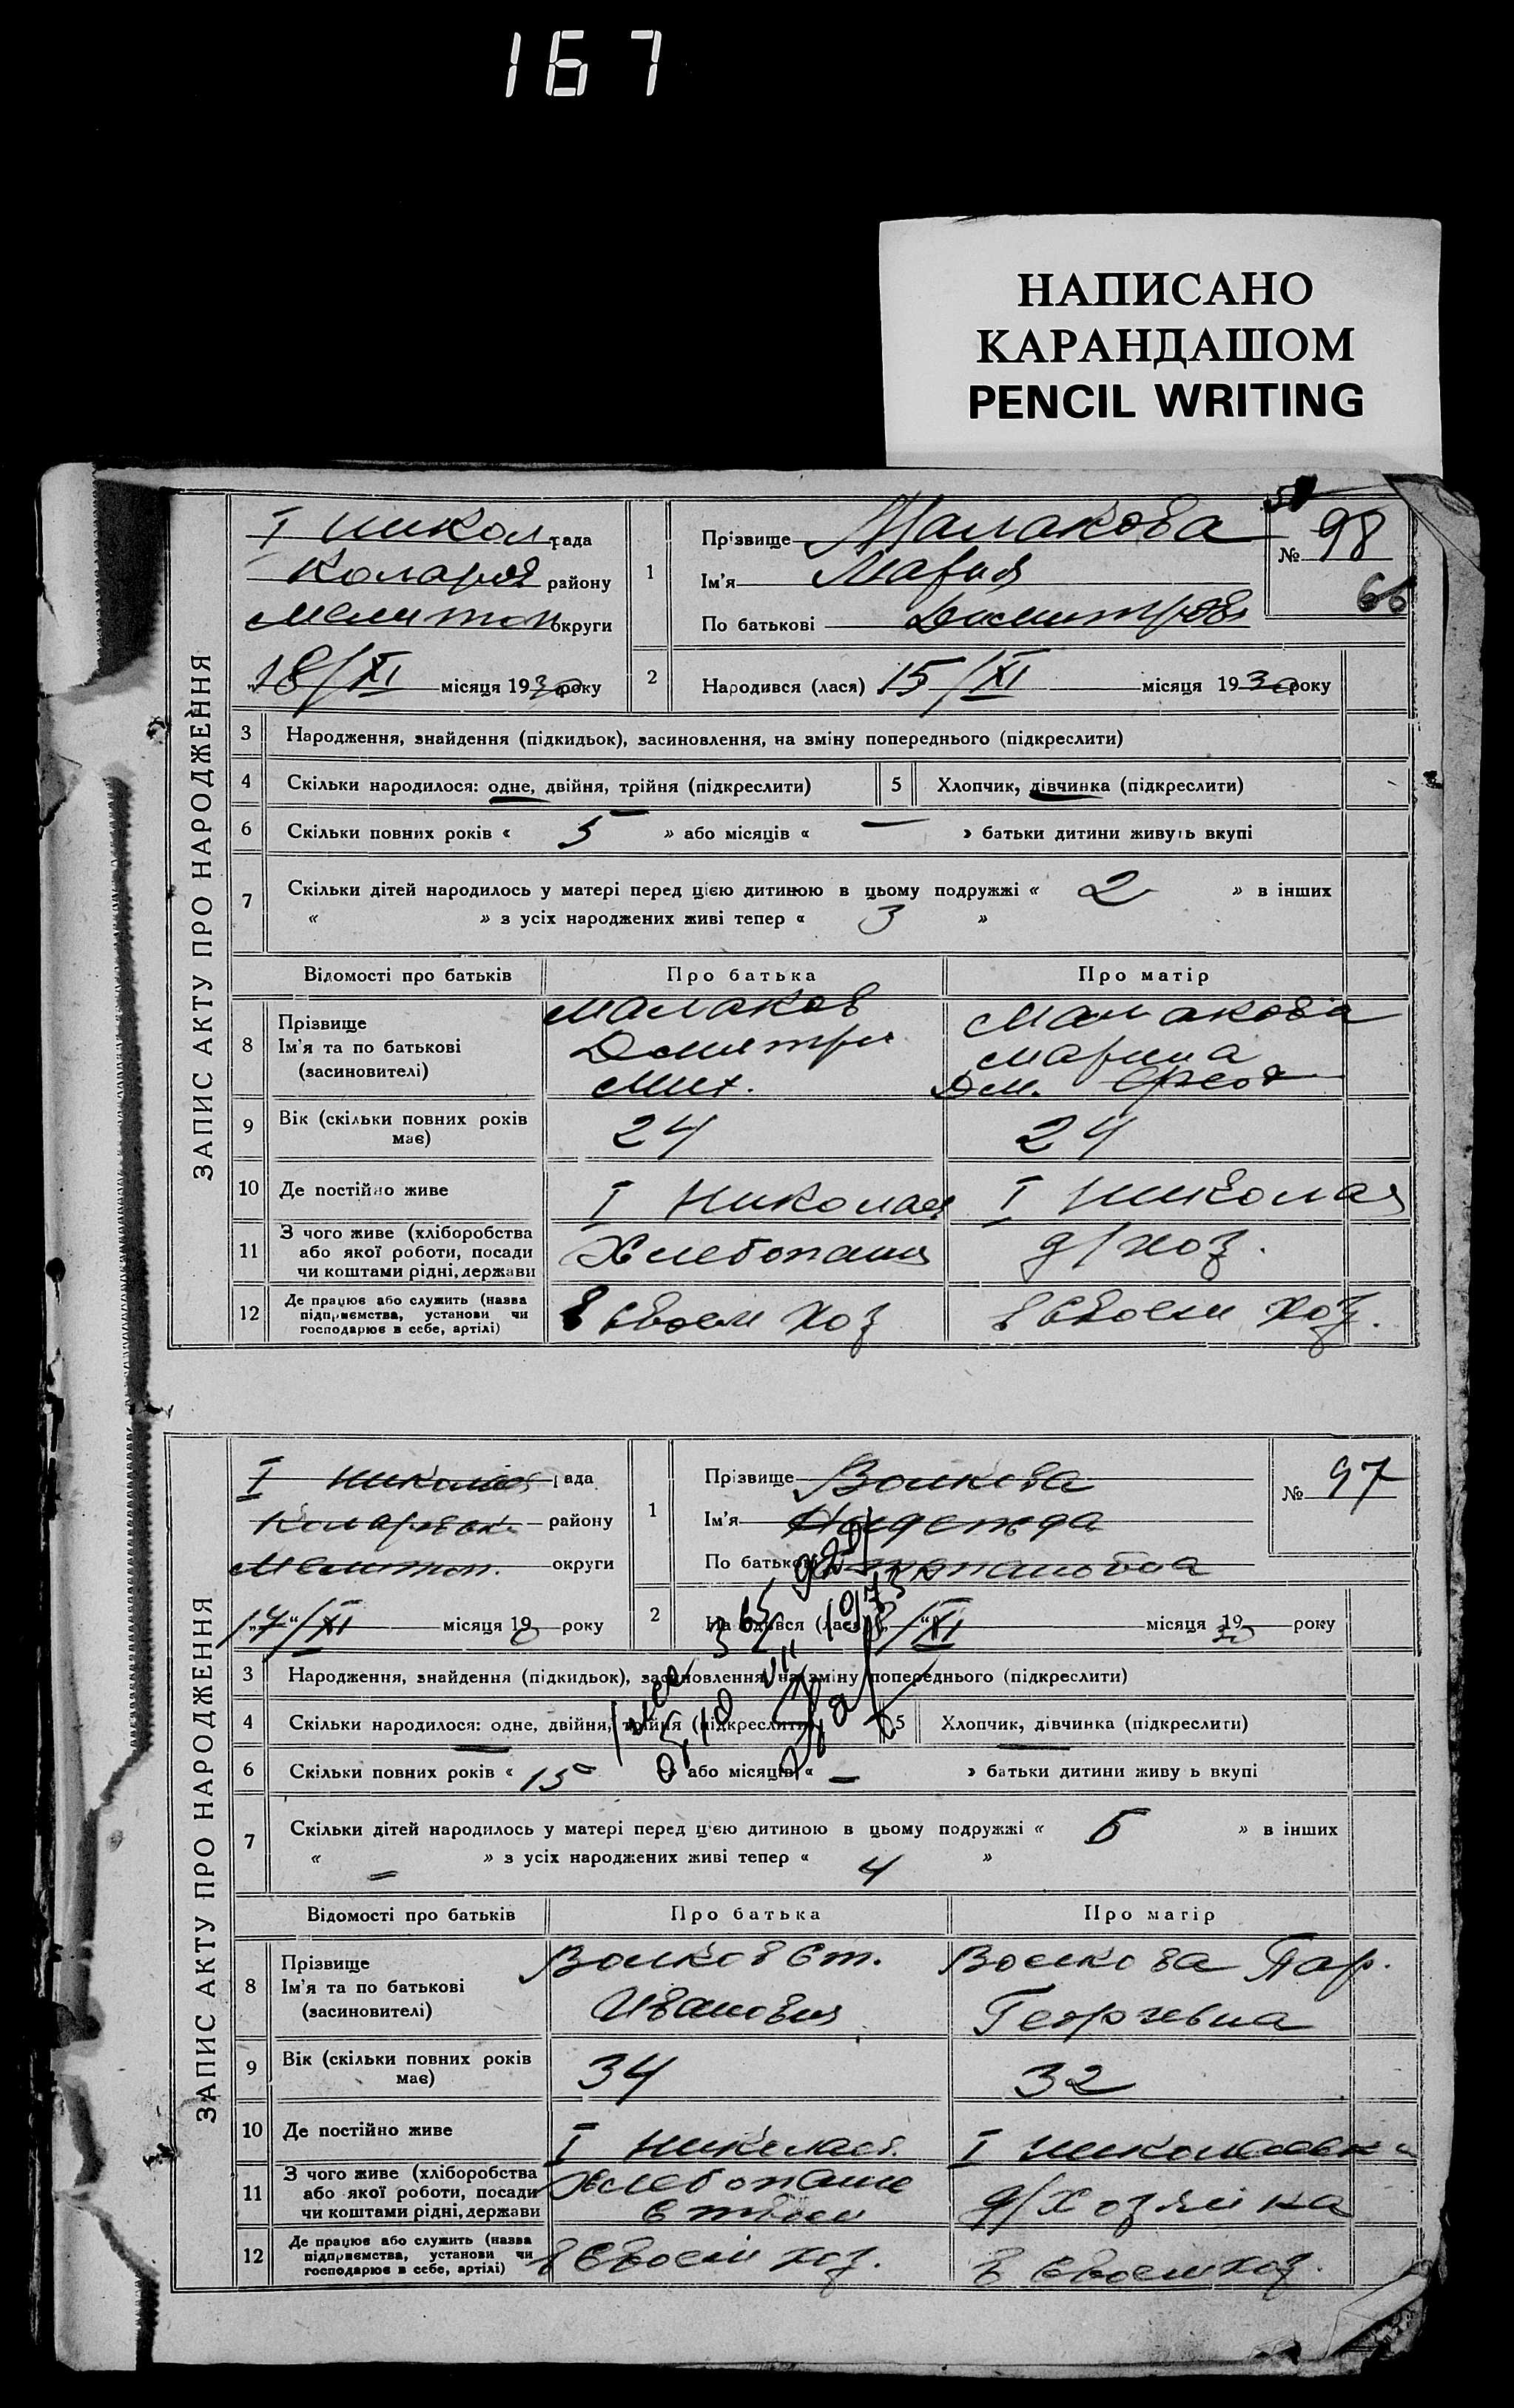 167
НАПИСАНО
КАРАНДАШОМ
PENCIL WRITING
ЗАПИС АКТУ ПРО НАРОДЖЕННЯ
І Никол. рада
Коларов району
Мелитоп округи
„18/XI місяця 1930 року
1 Прізвище Малакова
Ім'я Мария
По батькові Дмитров
№ 98
66
2 Народився (лася) 15/XI місяця 1930 року
3 Народження, знайдення (підкидьок), засиновлення, на зміну попереднього (підкреслити)
4 Скільки народилося: одне, двійня, трійня (підкреслити) 5 Хлопчик, дівчинка (підкреслити)
6 Скільки повних років « 5 » або місяців « — » батьки дитини живуть вкупі
7 Скільки дітей народилось у матері перед цією дитиною в цьому подружжі « 2 » в інших
« » з усіх народжених живі тепер « 3 »
Відомості про батьків Про батька Про матір
8 Прізвище
Ім'я та по батькові
(засиновителі)
Малаков
Дмитри
Мих.
Малакова
Марина
Дм.
9 Вік (скільки повних років має) 24 24
10 Де постійно живе І Николаев І Николаев
11 З чого живе (хліборобства
або якої роботи, посади
чи коштами рідні, держави
Хлебопаш д/хоз.
12 Де працює або служить (назва
підприємства, установи чи
господарює в себе, артілі)
в своем хоз в своем хоз.
ЗАПИС АКТУ ПРО НАРОДЖЕННЯ
І Николаев рада
Коларовск. району
Мелитоп. округи
„17“/XI місяця 19 року
1 Прізвище Волкова
Ім'я Надежда
По батькові Степановна
№ 97
2 Народився (лася) /XI місяця 1930 року
3 Народження, знайдення (підкидьок), засиновлення, на зміну попереднього (підкреслити)
4 Скільки народилося: одне, двійня, трійня (підкреслити) 5 Хлопчик, дівчинка (підкреслити)
6 Скільки повних років « 15 » або місяців « — » батьки дитини живуь вкупі
7 Скільки дітей народилось у матері перед цією дитиною в цьому подружжі « 5 » в інших
« — » з усіх народжених живі тепер « 4 »
Відомості про батьків Про батька Про матір
8 Прізвище
Ім'я та по батькові
(засиновителі)
Волков Ст.
Иванович
Волкова Пар.
Георгиевна
9 Вік (скільки повних років має) 34 32
10 Де постійно живе І Николаев. І Николаевка
11 З чого живе (хліборобства
або якої роботи, посади
чи коштами рідні, держави
Хлебопаше
ством
д/Хозяйка
12 Де працює або служить (назва
підприємства, установи чи
господарює в себе, артілі)
в своем хоз. в своем хоз.